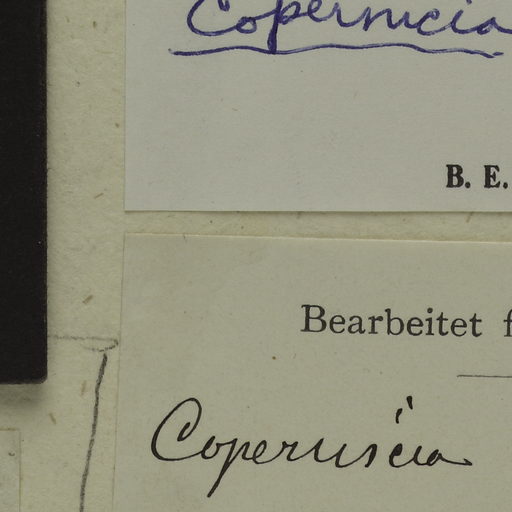 Copernicia
B. E.
Bearbeitet f
Copernicia